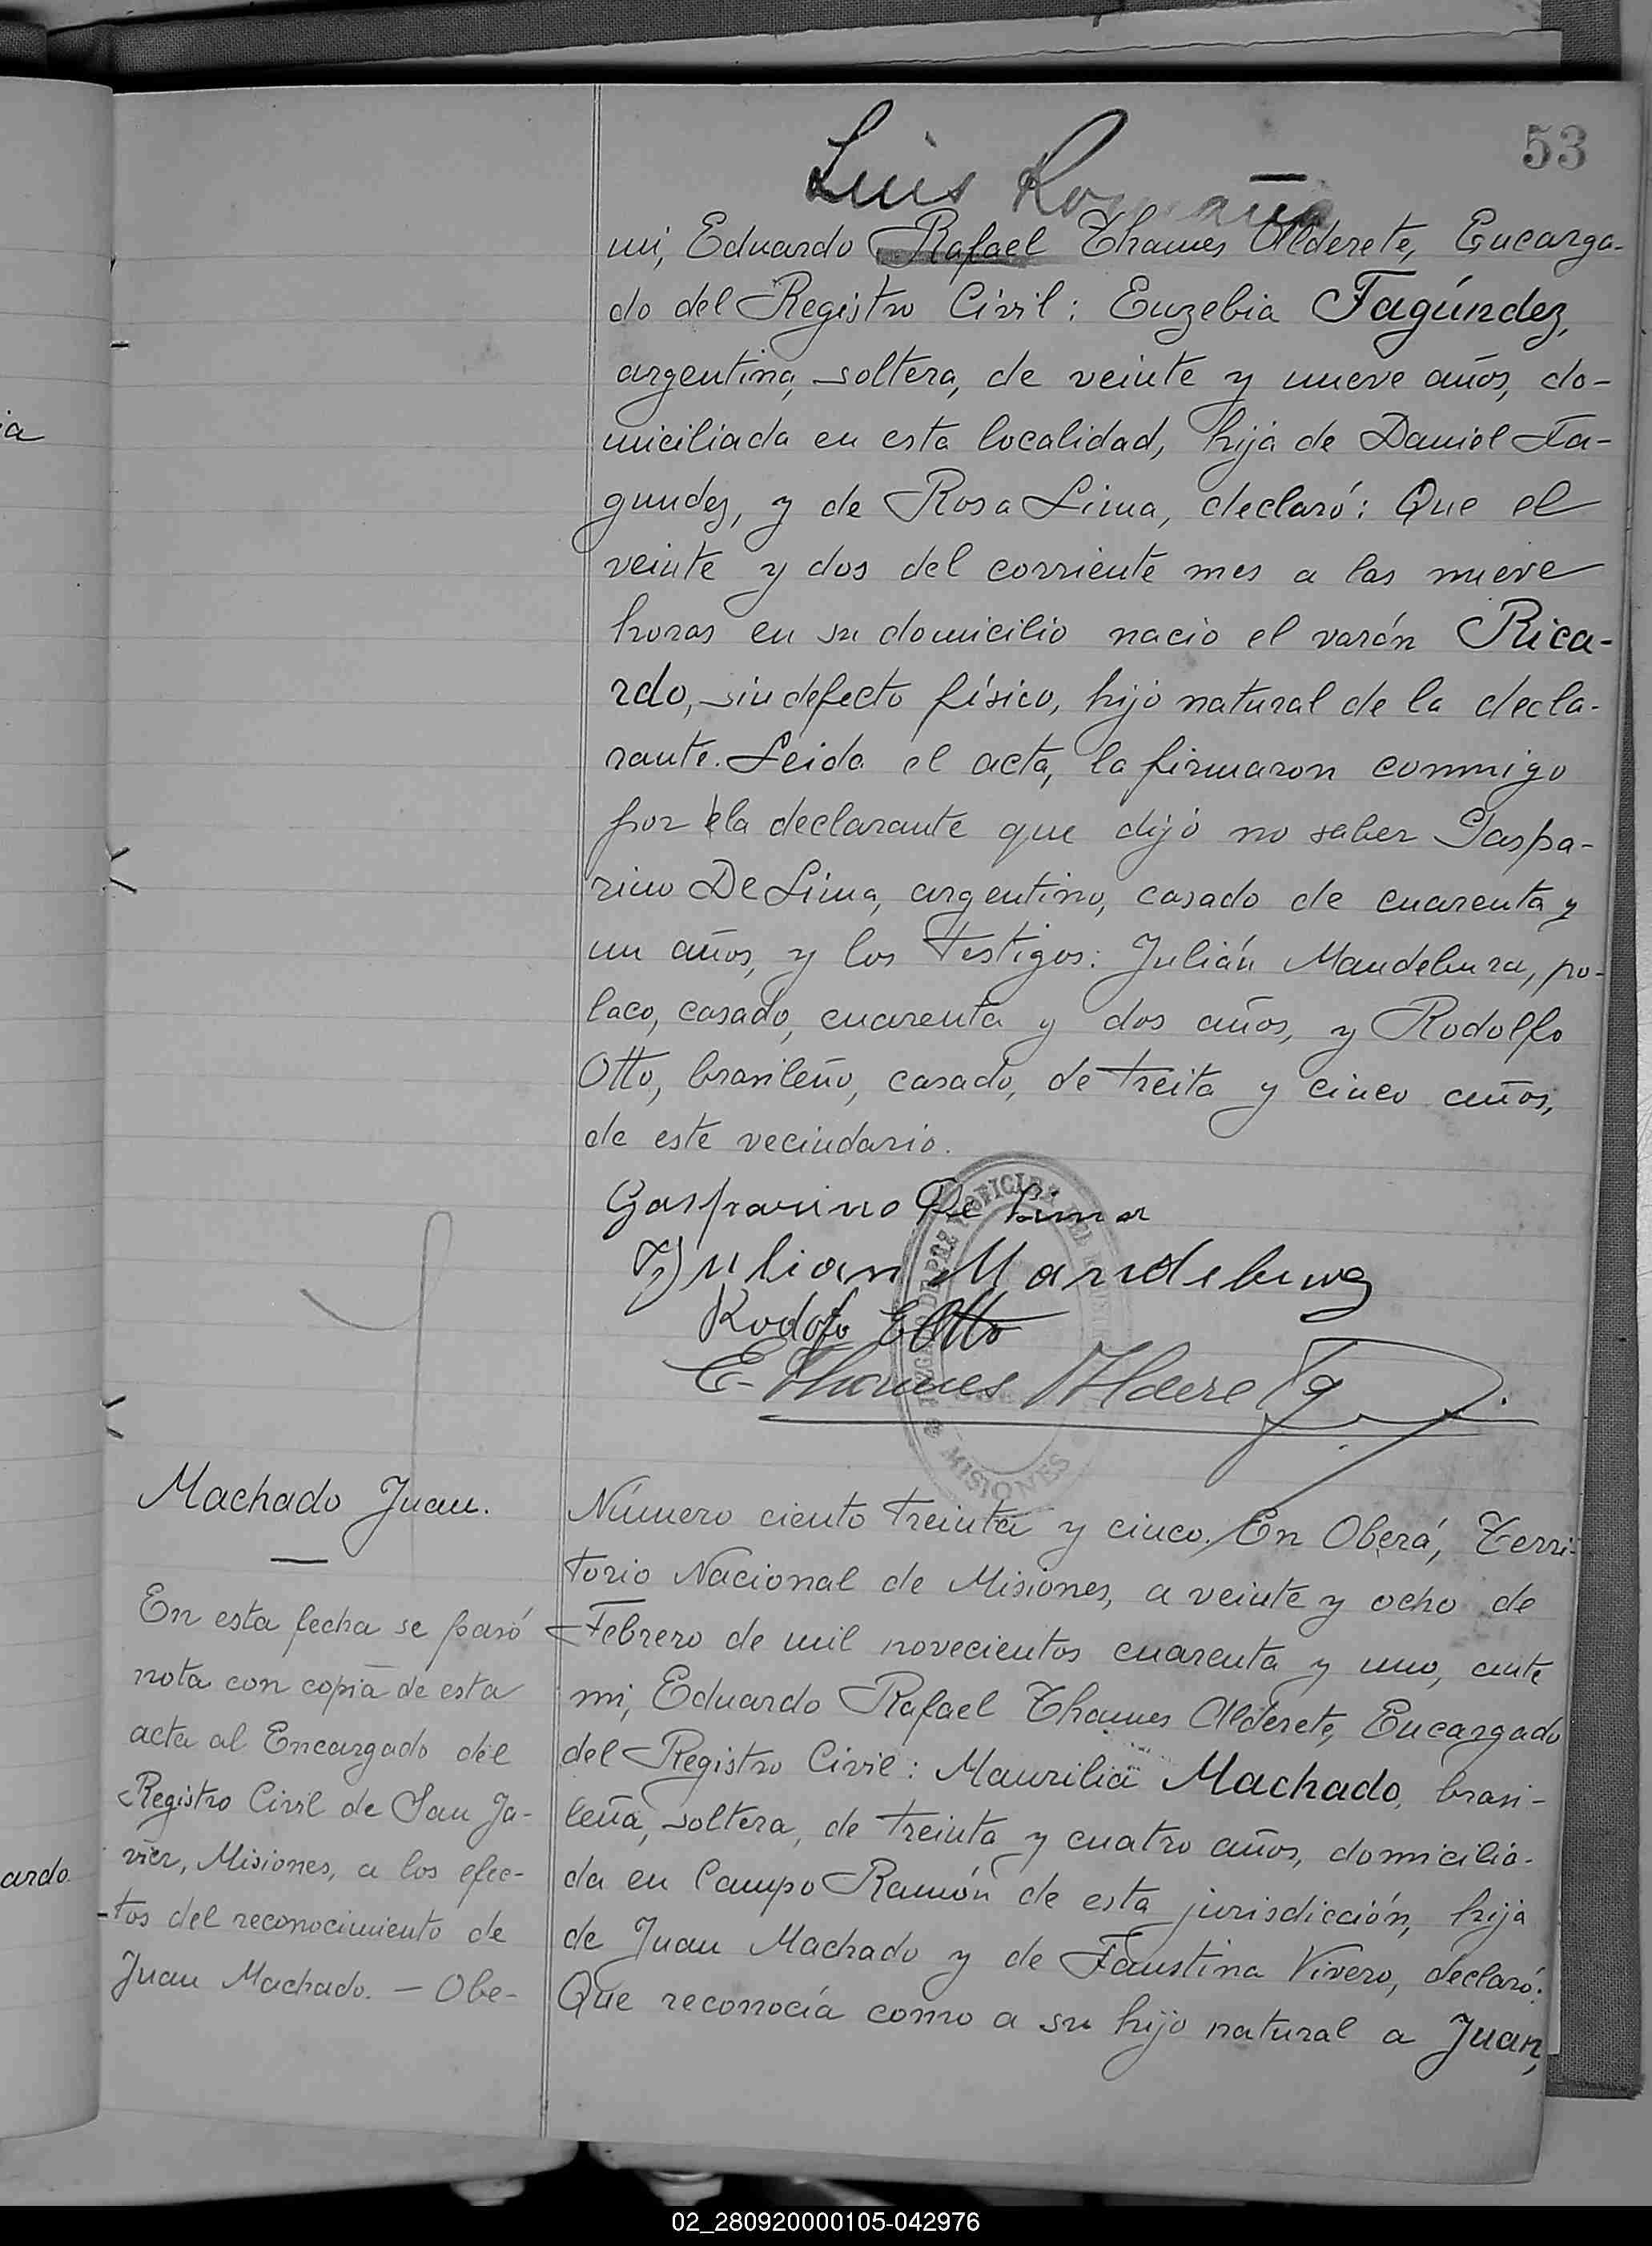 53
Luis Romaña
mi, Eduardo Rafael Thames Alderete, Encarga-
do del Registro Civil: Euzebia Fagúndez,
argentina, soltera, de veinte y nueve años, do-
miciliada en esta localidad, hija de Daniel Fa-
gundez, y de Rosa Lima, declaró: Que el
veinte y dos del corriente mes a las nueve
horas en su domicilio nacio el varón Rica-
rdo, sin defecto físico, hijo natural de la decla-
rante. Leida el acta, la firmaron conmigo
por la declarante que dijo no saber Gaspa-
rino De Lima, argentino, casado de cuarenta y
un años, y los testigos: Julián Mandebura, po-
laco, casado, cuarenta y dos años, y Rodolfo
Otto, brasileño, casado, de treita y cinco años,
de este vecindario.
Gasparino De Lima
Julian Mandebura
Rodofo E Otto
E. Thames Alderete
JUZGADO DE PAZ MISIONES
Machado Juan.
En esta fecha se pasó
nota con copia de esta
acta al Encargado del
Registro Civil de San Ja-
vier, Misiones, a los efec-
tos del reconocimiento de
Juan Machado. — Obe-
Número ciento treinta y cinco. En Oberá, Terri-
torio Nacional de Misiones, a veinte y ocho de
Febrero de mil novecientos cuarenta y uno, ante
mi, Eduardo Rafael Thames Alderete, Encargado
del Registro Civil: Maurilia Machado, brasi-
leña, soltera, de treinta y cuatro años, domicilia-
da en Campo Ramón de esta jurisdicción, hija
de Juan Machado y de Faustina Vivero, declaró:
Que reconocía como a su hijo natural a Juan,
ia
ardo.
02_280920000105-042976